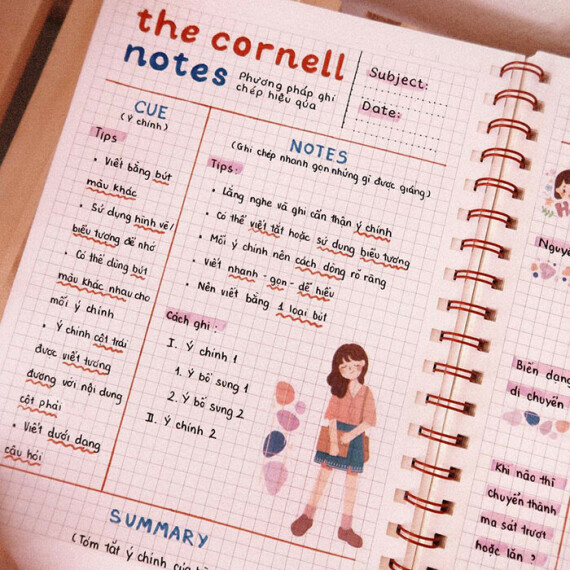 the cornell
notes
Phương pháp ghi
chép hiệu quả
Subject:
Date:
CUE
(Ý chính)
Tips
• Viết bằng bút
màu khác
• Sử dụng hình vẽ/
biểu tượng để nhớ
• Có thể dùng bút
màu khác nhau cho
mỗi ý chính
• Ý chính cột trái
được viết tương
đương với nội dung
cột phải
• Viết dưới dạng
câu hỏi
NOTES
(Ghi chép nhanh gọn những gì được giảng)
Tips:
• Lắng nghe và ghi cẩn thận ý chính
• Có thể viết tắt hoặc sử dụng biểu tượng
• Mỗi ý chính nên cách dòng rõ ràng
• Viết nhanh - gọn - dễ hiểu
• Nên viết bằng 1 loại bút
Cách ghi:
I. Ý chính 1
1. Ý bổ sung 1
2. Ý bổ sung 2
II. Ý chính 2
SUMMARY
(Tóm tắt ý chính của
Biến dạng
di chuyển
Khi nào thì
chuyển thành
ma sát trượt
hoặc lăn ?